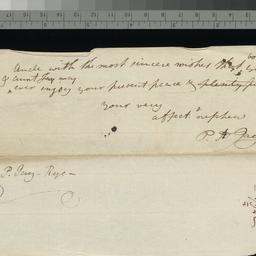 Uncle with the most sincere wishes that
& aunt may
ever enjoy your present peace & plenty
Your very
affect nephew
P.
P.